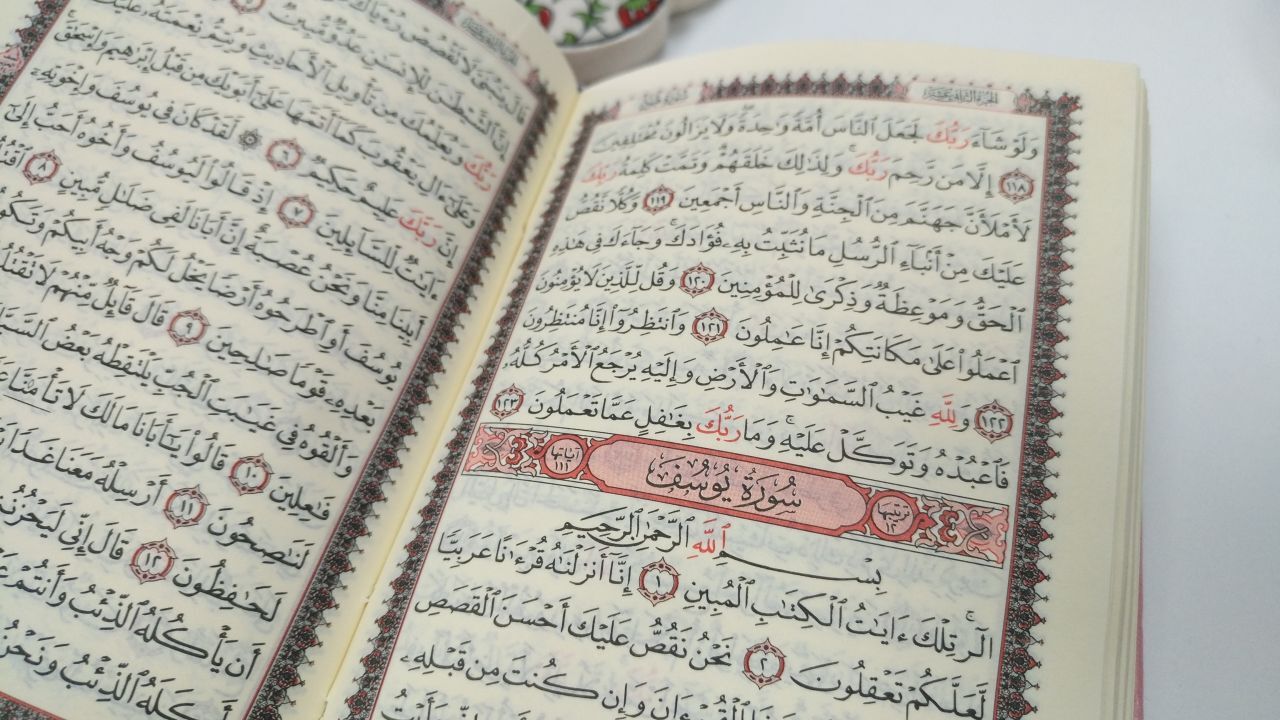 وَلَوْ شَآءَ رَبُّكَ لَجَعَلَ ٱلنَّاسَ أُمَّةً وَٰحِدَةً وَلَا يَزَالُونَ مُخْتَلِفِينَ
١١٨ إِلَّا مَن رَّحِمَ رَبُّكَ ۚ وَلِذَٰلِكَ خَلَقَهُمْ ۗ وَتَمَّتْ كَلِمَةُ رَبِّكَ
لَأَمْلَأَنَّ جَهَنَّمَ مِنَ ٱلْجِنَّةِ وَٱلنَّاسِ أَجْمَعِينَ ١١٩ وَكُلًّا نَّقُصُّ
عَلَيْكَ مِنْ أَنۢبَآءِ ٱلرُّسُلِ مَا نُثَبِّتُ بِهِۦ فُؤَادَكَ ۚ وَجَآءَكَ فِى هَٰذِهِ
ٱلْحَقُّ وَمَوْعِظَةٌ وَذِكْرَىٰ لِلْمُؤْمِنِينَ ١٢٠ وَقُل لِّلَّذِينَ لَا يُؤْمِنُونَ
ٱعْمَلُوا۟ عَلَىٰ مَكَانَتِكُمْ إِنَّا عَٰمِلُونَ ١٢١ وَٱنتَظِرُوٓا۟ إِنَّا مُنتَظِرُونَ
١٢٢ وَلِلَّهِ غَيْبُ ٱلسَّمَٰوَٰتِ وَٱلْأَرْضِ وَإِلَيْهِ يُرْجَعُ ٱلْأَمْرُ كُلُّهُۥ
فَٱعْبُدْهُ وَتَوَكَّلْ عَلَيْهِ ۚ وَمَا رَبُّكَ بِغَٰفِلٍ عَمَّا تَعْمَلُونَ ١٢٣
ترتيبها ١٢ سُورَةُ يُوسُفَ آياتها ١١١
بِسْمِ ٱللَّهِ ٱلرَّحْمَٰنِ ٱلرَّحِيمِ
الٓر ۚ تِلْكَ ءَايَٰتُ ٱلْكِتَٰبِ ٱلْمُبِينِ ١ إِنَّآ أَنزَلْنَٰهُ قُرْءَٰنًا عَرَبِيًّا
لَّعَلَّكُمْ تَعْقِلُونَ ٢ نَحْنُ نَقُصُّ عَلَيْكَ أَحْسَنَ ٱلْقَصَصِ
ٱلْقُرْءَانَ وَإِن كُنتَ مِن قَبْلِهِۦ
رَبُّكَ وَيُعَلِّمُكَ مِن تَأْوِيلِ ٱلْأَحَادِيثِ وَيُتِمُّ نِعْمَتَهُۥ عَلَيْكَ
وَعَلَىٰٓ ءَالِ يَعْقُوبَ كَمَآ أَتَمَّهَا عَلَىٰٓ أَبَوَيْكَ مِن قَبْلُ إِبْرَٰهِيمَ وَإِسْحَٰقَ ۚ
إِنَّ رَبَّكَ عَلِيمٌ حَكِيمٌ ٦ ۞ لَّقَدْ كَانَ فِى يُوسُفَ وَإِخْوَتِهِۦٓ
ءَايَٰتٌ لِّلسَّآئِلِينَ ٧ إِذْ قَالُوا۟ لَيُوسُفُ وَأَخُوهُ أَحَبُّ إِلَىٰٓ
أَبِينَا مِنَّا وَنَحْنُ عُصْبَةٌ إِنَّ أَبَانَا لَفِى ضَلَٰلٍ مُّبِينٍ ٨
يُوسُفَ أَوِ ٱطْرَحُوهُ أَرْضًا يَخْلُ لَكُمْ وَجْهُ أَبِيكُمْ وَتَكُو
بَعْدِهِۦ قَوْمًا صَٰلِحِينَ ٩ قَالَ قَآئِلٌ مِّنْهُمْ لَا نَقْتُلُ
وَأَلْقُوهُ فِى غَيَٰبَتِ ٱلْجُبِّ يَلْتَقِطْهُ بَعْضُ ٱلسَّيَّا
فَٰعِلِينَ ١٠ قَالُوا۟ يَٰٓأَبَانَا مَا لَكَ لَا تَأْمَ۫نَّا عَ
لَنَٰصِحُونَ ١١ أَرْسِلْهُ مَعَنَا غَدًا
لَحَٰفِظُونَ ١٢ قَالَ إِنِّى لَيَحْزُنُ
أَن يَأْكُلَهُ ٱلذِّئْبُ وَأَنتُمْ عَ
أَكَلَهُ ٱلذِّئْبُ وَنَحْنُ